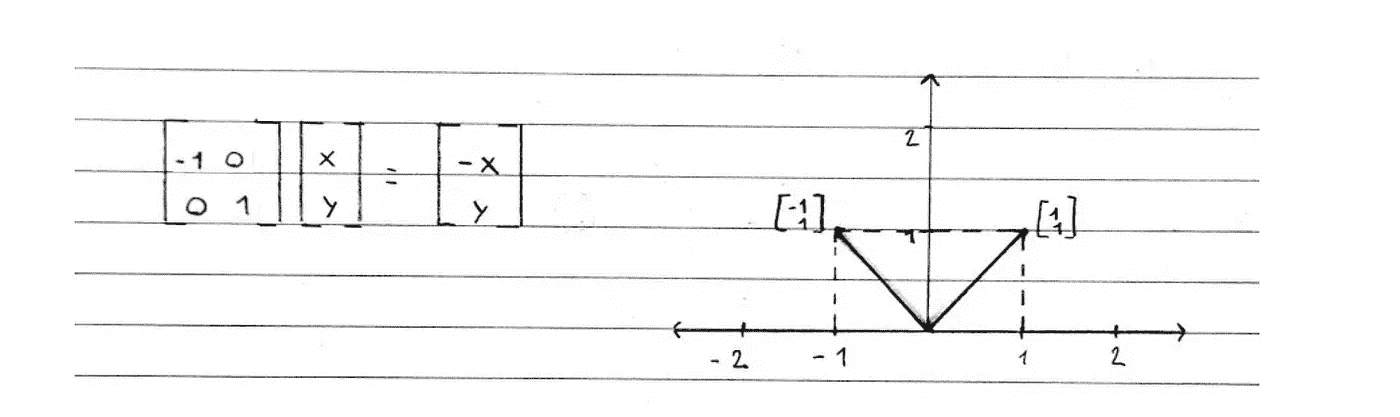 [-1 0
0 1] [x
y] = [-x
y]
2
[-1
1]
1
[1
1]
-2 -1 1 2